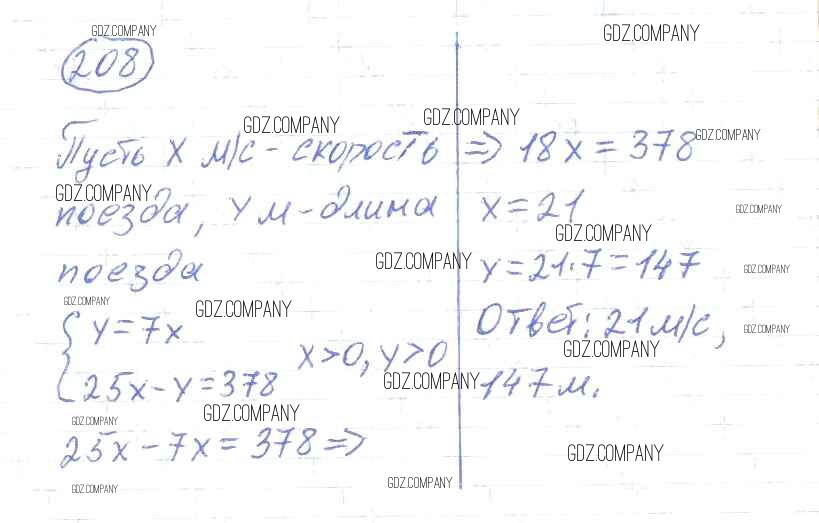 GDZ.COMPANY
GDZ.COMPANY
208
GDZ.COMPANY
GDZ.COMPANY
Пусть X м/с - скорость
GDZ.COMPANY
поезда, Y м - длина
поезда
GDZ.COMPANY
GDZ.COMPANY
GDZ.COMPANY
{ y = 7x
25x - y = 378
x > 0, y > 0
GDZ.COMPANY
GDZ.COMPANY
GDZ.COMPANY
25x - 7x = 378 =>
GDZ.COMPANY
GDZ.COMPANY
=> 18x = 378
GDZ.COMPANY
x = 21
GDZ.COMPANY
GDZ.COMPANY
y = 21·7 = 147
GDZ.COMPANY
Ответ: 21 м/с,
GDZ.COMPANY
GDZ.COMPANY
147 м.
GDZ.COMPANY